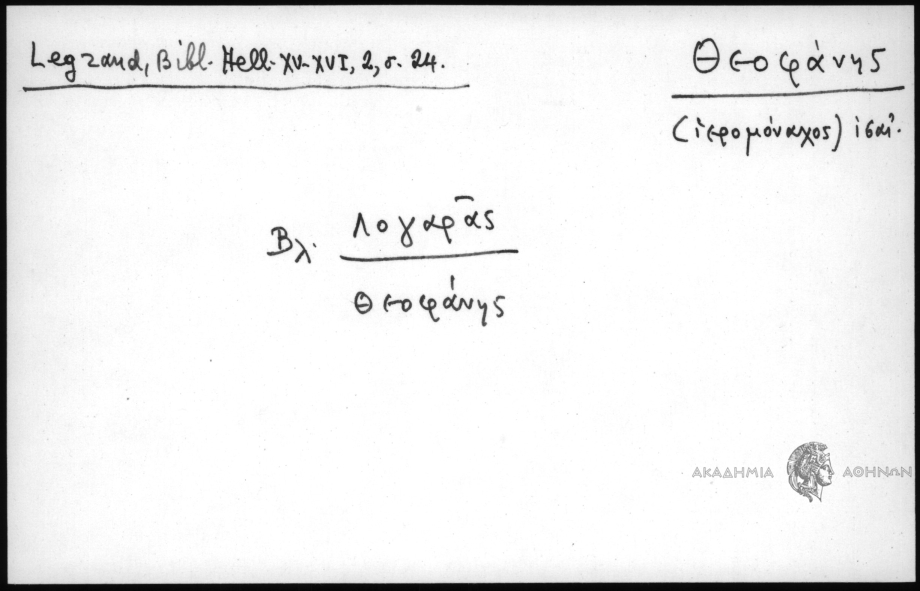 Legrand, Bibl. Hell. XV-XVI, 2, σ. 24.
Θεοφάνης
(ἱερομόναχος)
Βλ. Λογαρᾶς
Θεοφάνης
ΑΚΑΔΗΜΙΑ ΑΘΗΝΩΝ